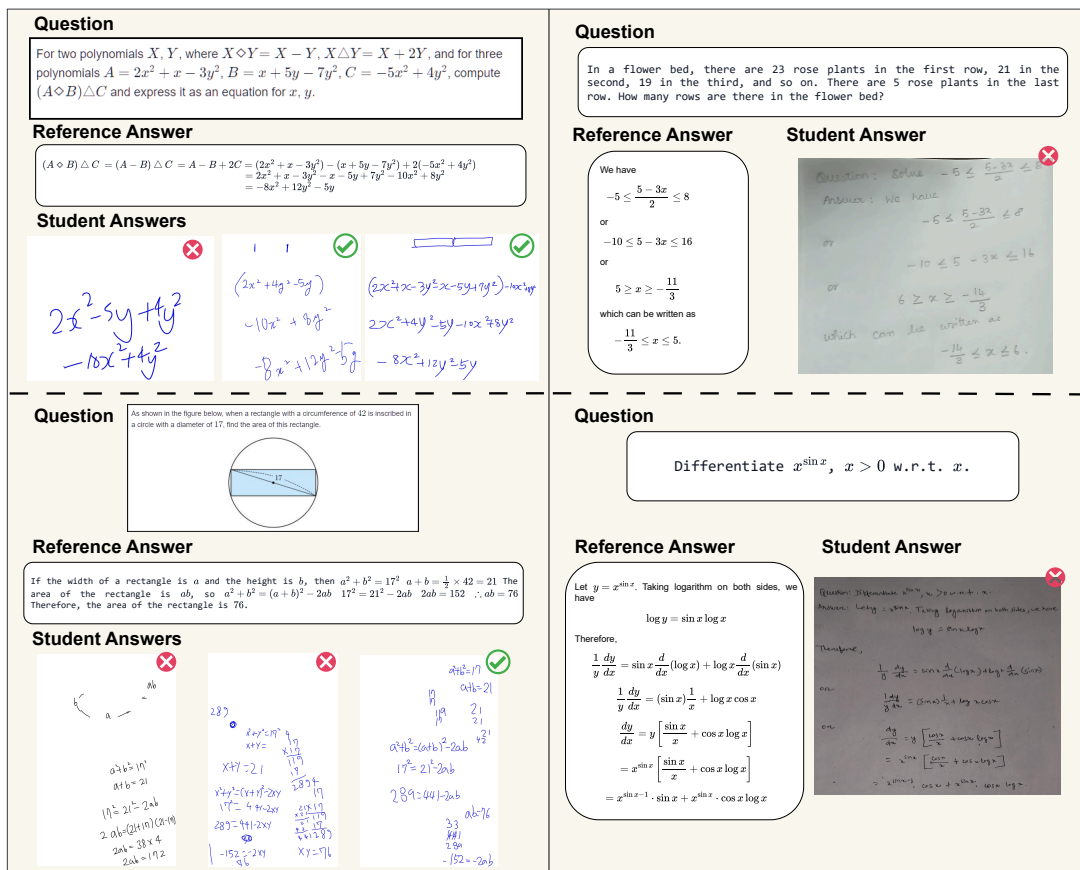 Question
For two polynomials X, Y, where X◇Y = X − Y, X△Y = X + 2Y, and for three
polynomials A = 2x² + x − 3y², B = x + 5y − 7y², C = −5x² + 4y², compute
(A◇B)△C and express it as an equation for x, y.
Reference Answer
(A ◇ B) △ C = (A − B) △ C = A − B + 2C = (2x² + x − 3y²) − (x + 5y − 7y²) + 2(−5x² + 4y²)
= 2x² + x − 3y² − x − 5y + 7y² − 10x² + 8y²
= −8x² + 12y² − 5y
Student Answers
2x²-5y+4y²
-10x²+4y²
(2x²+4y²-5y)
-10x² + 8y²
-8x²+12y²-5y
(2x²+x-3y²-x-5y+7y²)-10x²+8y²
2x²+4y²-5y-10x²+8y²
-8x²+12y²-5y
Question
In a flower bed, there are 23 rose plants in the first row, 21 in the
second, 19 in the third, and so on. There are 5 rose plants in the last
row. How many rows are there in the flower bed?
Reference Answer
We have
−5 ≤ (5 − 3x)/2 ≤ 8
or
−10 ≤ 5 − 3x ≤ 16
or
5 ≥ x ≥ −11/3
which can be written as
−11/3 ≤ x ≤ 5.
Student Answer
Question: Solve -5 ≤ (5-3x)/2 ≤ 8
Answer: We have
-5 ≤ (5-3x)/2 ≤ 8
or
-10 ≤ 5 - 3x ≤ 16
or
6 ≥ x ≥ -14/3
which can be written as
-14/3 ≤ x ≤ 6.
Question
As shown in the figure below, when a rectangle with a circumference of 42 is inscribed in
a circle with a diameter of 17, find the area of this rectangle.
17
Reference Answer
If the width of a rectangle is a and the height is b, then a² + b² = 17² a + b = ½ × 42 = 21 The
area of the rectangle is ab, so a² + b² = (a + b)² − 2ab 17² = 21² − 2ab 2ab = 152 ∴ ab = 76
Therefore, the area of the rectangle is 76.
Student Answers
ab
b
a
a²+b²=17²
a+b=21
17²=21²-2ab
2ab=(21+17)(21-17)
2ab=38×4
2ab=172
289
x²+y²=17²
x+y=
x+y=21
x²+y²=(x+y)²-2xy
17²=441-2xy
289=441-2xy
-152=-2xy
76
17
×17
119
17
289
xy=76
a²+b²=17
a+b=21
17
17
119
17
21
21
21
42
a²+b²=(a+b)²-2ab
17²=21²-2ab
289=441-2ab
ab=76
33
441
289
-152=-2ab
Question
Differentiate x^sin x, x > 0 w.r.t. x.
Reference Answer
Let y = x^sin x. Taking logarithm on both sides, we
have
log y = sin x log x
Therefore,
1/y dy/dx = sin x d/dx (log x) + log x d/dx (sin x)
1/y dy/dx = (sin x) 1/x + log x cos x
dy/dx = y [sin x/x + cos x log x]
= x^sin x [sin x/x + cos x log x]
= x^(sin x−1) · sin x + x^sin x · cos x log x
Student Answer
Question: Differentiate x^sinx, x > 0 w.r.t. x.
Answer: Let y = x^sinx. Taking logarithm on both sides, we have
log y = sinx logx
Therefore,
1/y dy/dx = sinx d/dx (logx) + logx d/dx (sinx)
or
1/y dy/dx = (sinx) 1/x + log x cosx
or
dy/dx = y [cosx/x + cosx logx]
= x^sinx [cosx/x + cosx logx]
cosx + x^sinx . cosx logx